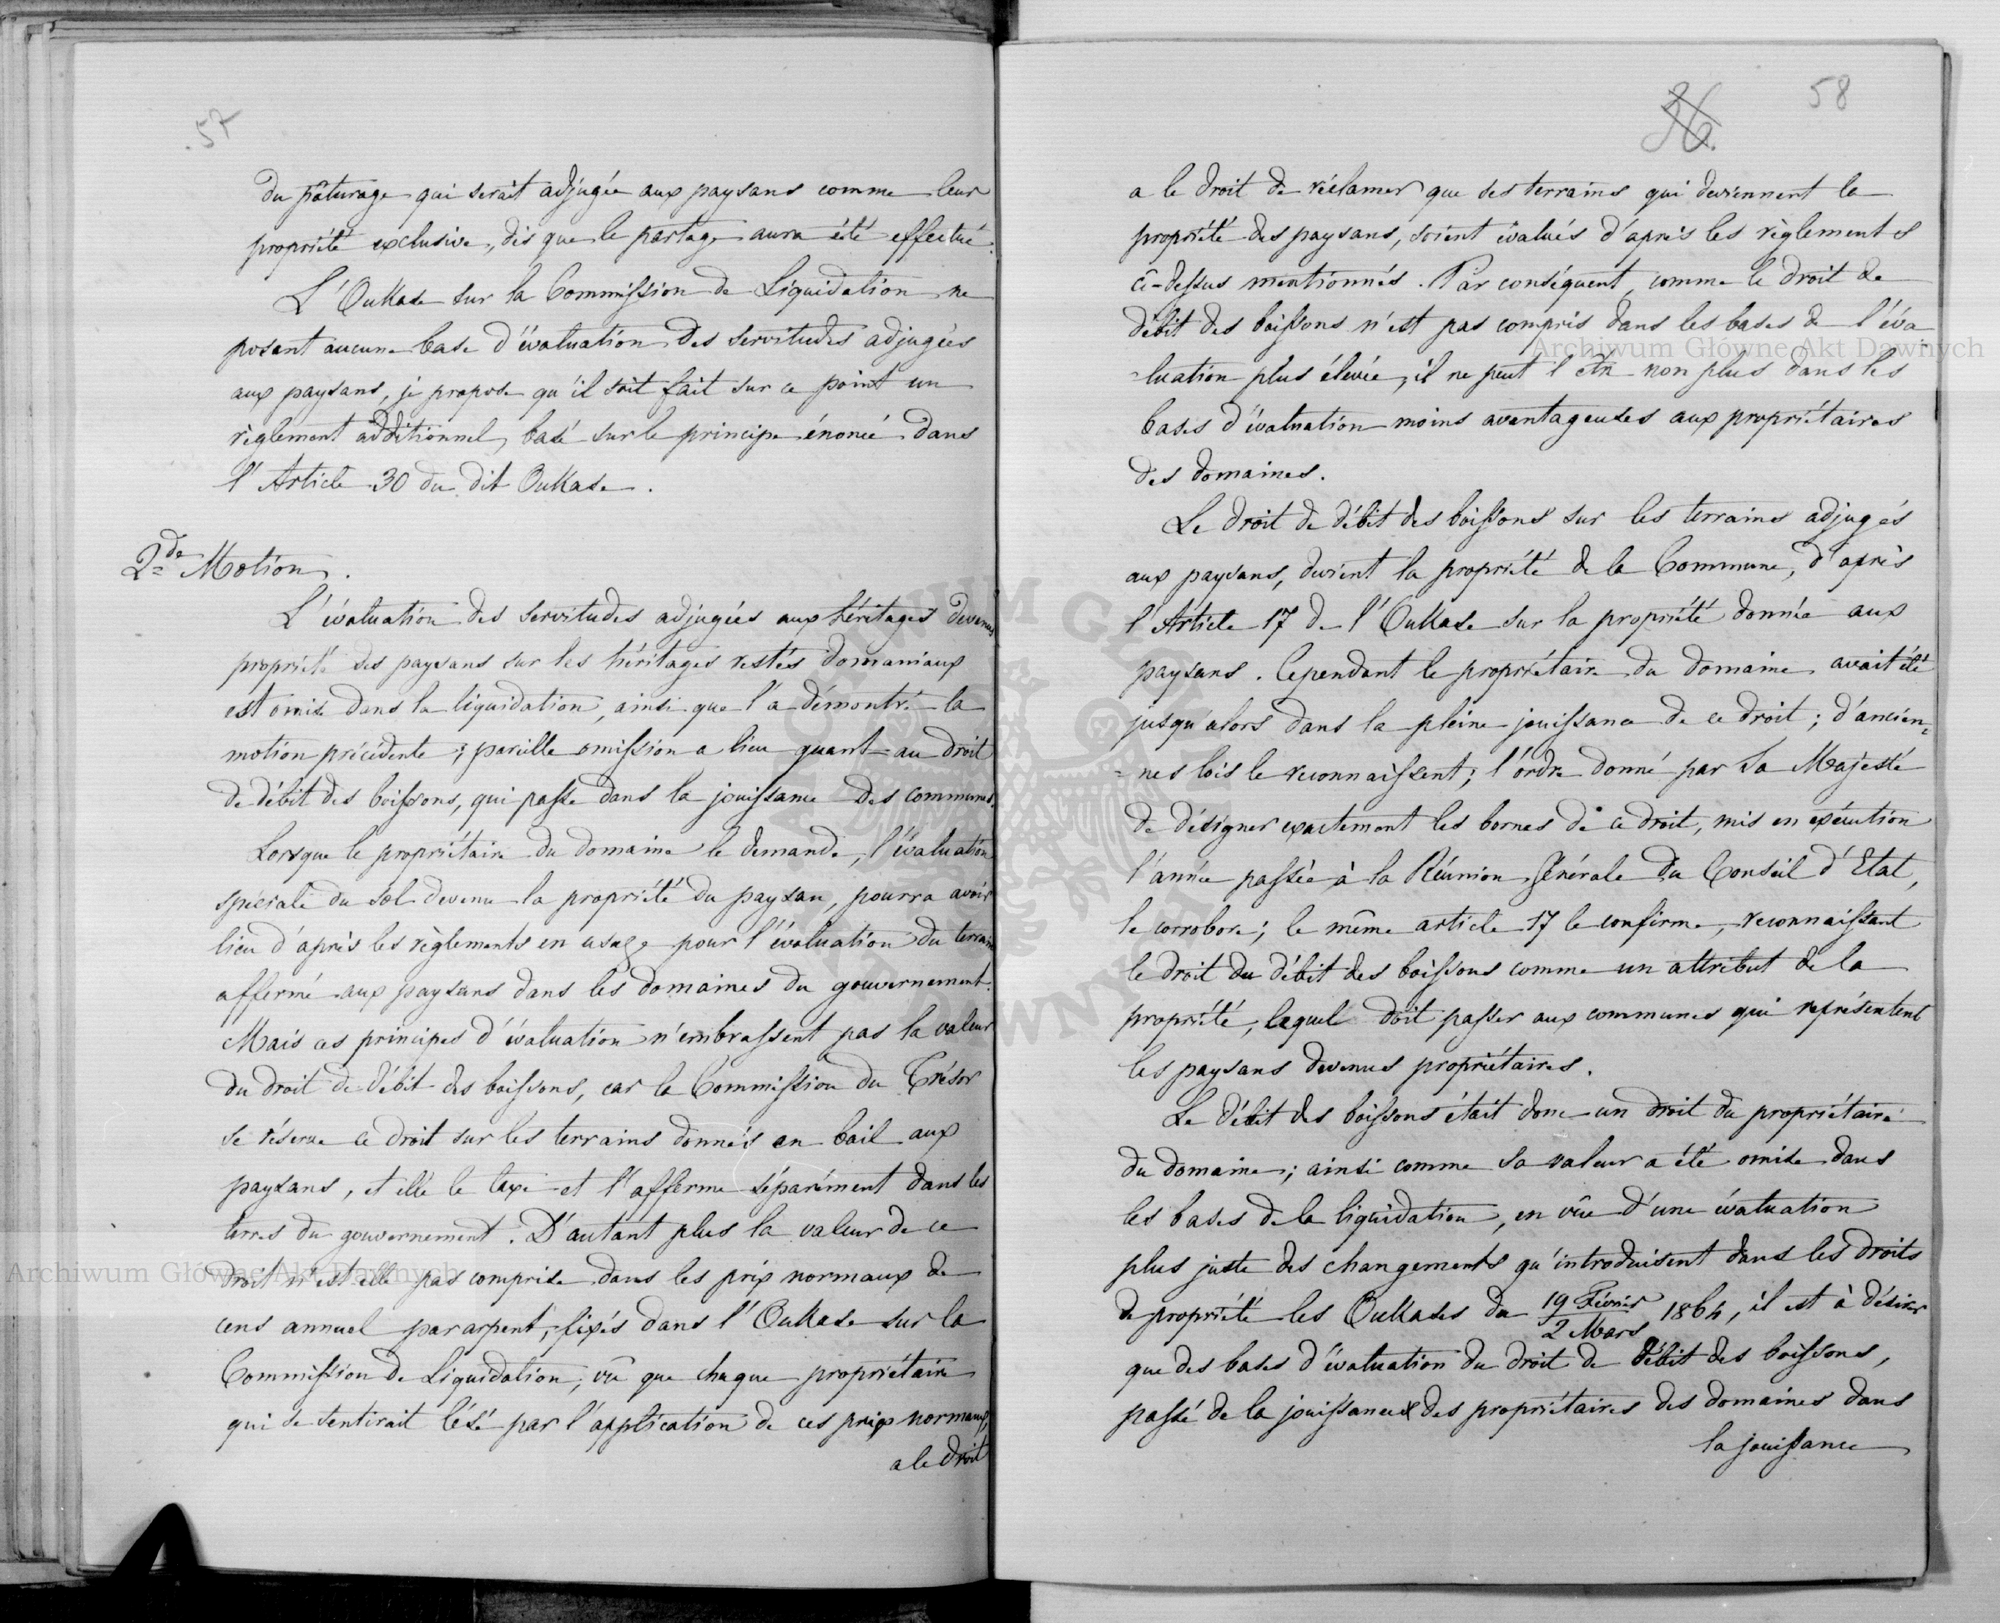 57
du pâturage qui serait adjugée aux paysans comme leur
propriété exclusive, dès que le partage aura été effectué.
L'Oukase sur la Commission de Liquidation ne
posant aucune base d'évaluation des servitudes adjugées
aux paysans, je propose qu'il soit fait sur ce point un
règlement additionnel, basé sur le principe énoncé dans
l'Article 30 du dit Oukase.
2de Motion.
L'évaluation des servitudes adjugées aux héritages devenus
propriété des paysans sur les héritages restés domaniaux
est omise dans la liquidation, ainsi que l'a démontré la
motion précédente; pareille omission a lieu quant au droit
de débit des boissons, qui passe dans la jouissance des communes.
Lorsque le propriétaire du domaine le demande, l'évaluation
spéciale du sol devenu la propriété du paysan, pourra avoir
lieu d'après les règlements en usage pour l'évaluation du terrain
affermé aux paysans dans les domaines du gouvernement.
Mais ces principes d'évaluation n'embrassent pas la valeur
du droit de débit des boissons, car la Commission du Trésor
se réserve ce droit sur les terrains donnés en bail aux
paysans, et elle le taxe et l'afferme séparément dans les
terres du gouvernement. D'autant plus la valeur de ce
droit n'est elle pas comprise dans les prix normaux de
cens annuel par arpent, fixés dans l'Oukase sur la
Commission de Liquidation, vû que chaque propriétaire
qui se sentirait lésé par l'application de ces prix normaux
a le droit
36.
58
a le droit de réclamer que des terrains qui deviennent la
propriété des paysans, soient évalués d'après les règlements
ci-dessus mentionnés. Par conséquent, comme le droit de
débit des boissons n'est pas compris dans les bases de l'éva
-luation plus élevée, il ne peut l'être non plus dans les
bases d'évaluation moins aventageuses aux propriétaires
des domaines.
Le droit de débit des boissons sur les terrains adjugés
aux paysans, devient la propriété de la Commune, d'après
l'Article 17 de l'Oukase sur la propriété donnée aux
paysans. Cependant le propriétaire du domaine avait été
jusqu'alors dans la pleine jouissance de ce droit; d'ancien=
=nes lois le reconnaissent; l'ordre donné par Sa Majesté
de désigner exactement les bornes de ce droit, mis en exécution
l'année passée à la Réunion Générale du Conseil d'Etat,
le corrobore; le même article 17 le confirme, reconnaissant
le droit du débit des boissons comme un attribut de la
propriété, lequel doit passer aux communes qui représentent
les paysans devenus propriétaires.
Le débit des boissons était donc un droit du propriétaire
du domaine; ainsi comme sa valeur a été omise dans
les bases de la liquidation, en vûe d'une évaluation
plus juste des changements qu'introduisent dans les droits
de propriété les Oukases du 19 Février / 2 Mars 1864, il est à désirer
que des bases d'évaluation du droit de débit des boissons,
passé de la jouissance des propriétaires des domaines dans
la jouissance
Archiwum Główne Akt Dawnych
Archiwum Główne Akt Dawnych